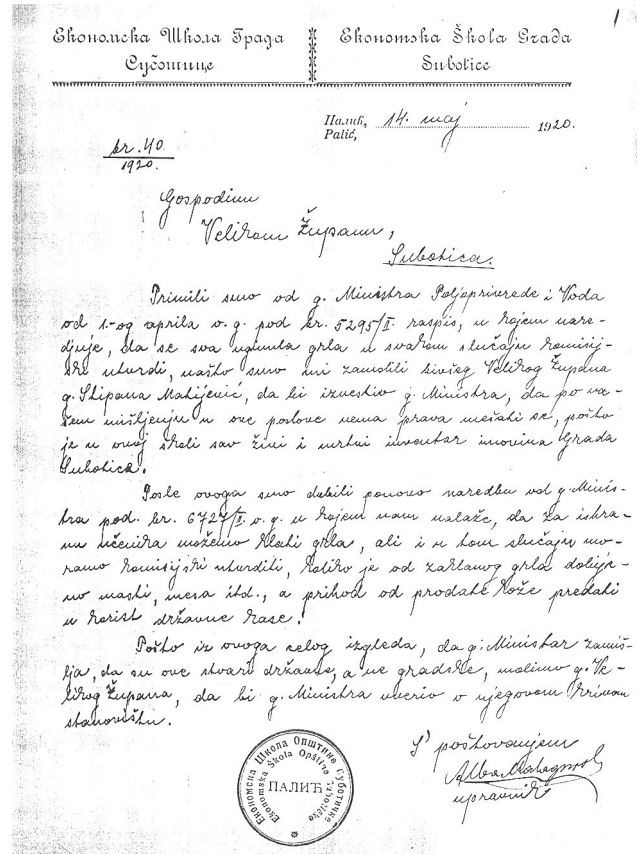 1
Економска Школа Града
Суботице
Ekonomska Škola Grada
Subotice
Палић,
Palić,
14. maj 1920.
br. 40
1920.
Gospodinu
Velikom Županu,
Subotica.
Primili smo od g. Ministra Poljoprivrede i Voda
od 1.-og aprila o. g. pod br. 5295/II. raspis, u kojem nare-
djuje, da se sva uginula grla u svakom slučaju komisij-
ski utvrdi, našto smo mi zamolili bivšeg Velikog Župana
g. Stipana Matijević, da bi izvestio g. Ministra, da po va-
šem mišljenju u ove poslove nema prava mešati se, pošto
je u ovoj školi sav živi i mrtvi inventar imovina Grada
Subotica.
Posle ovoga smo dobili ponovo naredbu od g. Minis-
tra pod. br. 6727/II. o. g. u kojem nam nalaže, da za ishra-
nu učenika možemo klati grla, ali i u tom slučaju mo-
ramo komisijski utvrditi, koliko je od zaklanog grla dobije-
no masti, mesa itd., a prihod od prodate kože predati
u korist državne kase.
Pošto iz ovoga celog izgleda, da g. Ministar zamiš-
lja, da su ove stvari državne, a ne gradske, molimo g. Ve-
likog Župana, da bi g. Ministra uverio o njegovom krivom
stanovištu.
S' poštovanjem
upravnik
Економска Школа Општине Суботичке
Ekonomska Škola Opštine Subotičke
ПАЛИЋ